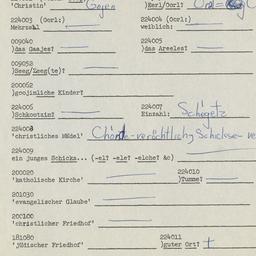 'Christin' Gojen )Eerl/Oorl?
224003 (Oorl:) 224004 (Oorl:)
Mehrzahl weiblich:
009040 224005
)das Gaajes? )das Areeles?
009052
)Seeg/Zeeg(te)?
200052
)goojinliche Kinder?
224006 224007
)Schkootzin? Einzahl: Schegetz
224008
'christliches Mädel' verächtlich, Schickse
224009
ein junges Schicks... (-el? -ele? -elche? &c)
200020 224010
'katholische Kirche' )Tumme?
201030
'evangelischer Glaube'
200100
'christlicher Friedhof'
181080 224011
'jüdischer Friedhof' )guter Ort? +